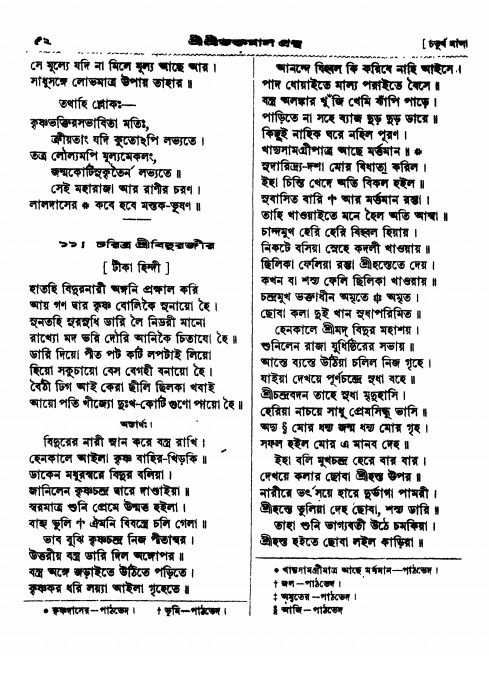 ৫২
শ্রীশ্রীভক্তমাল গ্রন্থ
[ চতুর্থ মালা
সে মূল্যে যদি না মিলে মূল্য আছে আর ।
সাধুসঙ্গে লোভমাত্র উপায় তাহার ॥
তথাহি শ্লোকঃ—
কৃষ্ণভক্তিরসভাবিতা মতিঃ,
ক্রীয়তাং যদি কুতোঽপি লভ্যতে ।
তত্র লৌল্যমপি মূল্যমেকলং,
জন্মকোটিসুকৃতৈর্ন লভ্যতে ॥
সেই মহারাজা আর রাণীর চরণ ।
লালদাসের * কবে হবে মস্তক-ভূষণ ॥
১১। চরিত্র শ্রীবিদুরজীর
[ টীকা হিন্দী ]
হাতহি বিদুরনারী অঙ্গনি প্রক্ষাল করি
আয় গণ দ্বার কৃষ্ণ বোলিকৈ সুনায়ো হৈ ।
সুনতহি সুরসুধি ডারি লৈ নিডরী মানো
রাখ্যো মদ ভরি দৌরি আনিকৈ চিতাযো হৈ ॥
ডারি দিয়ো পীত পট কটি লপটাই লিয়ো
হিয়ো সকুচায়ো বেস বেগহী বনায়ো হৈ ।
বৈঠী ঢিগ আই কেরা ছীলি ছিলকা খবাই
আয়ো পতি খীজ্যো দুঃখ-কোটি গুণো পায়ো হৈ ॥
অস্যার্থঃ ।
বিদুরের নারী স্নান করে বস্ত্র রাখি ।
হেনকালে আইলা কৃষ্ণ বাহির-খিড়কি ॥
ডাকেন মধুরস্বরে বিদুর বলিয়া ।
জানিলেন কৃষ্ণচন্দ্র দ্বারে দাণ্ডাইয়া ॥
স্বরমাত্র শুনি প্রেমে উন্মত্ত হইলা ।
বাহ্য ভুলি † ঐমনি বিবস্ত্রে চলি গেলা ॥
ভাব বুঝি কৃষ্ণচন্দ্র নিজ পীতাম্বর ।
উত্তরীয় বস্ত্র ডারি দিল অঙ্গোপর ॥
বস্ত্র অঙ্গে জড়াইতে উঠিতে পড়িতে ।
কৃষ্ণকর ধরি লয়্যা আইলা গৃহেতে ॥
* কৃষ্ণদাসের—পাঠভেদ । † ভূমি—পাঠভেদ ।
আনন্দে বিহ্বল কি করিবে নাহি আইসে ।
পাদ ধোয়াইতে মাল্য পরাইতে বৈসে ॥
বস্ত্র অলঙ্কার খুঁজি খেমি ঝাঁপি পাড়ে ।
পাড়িতে না সহে ব্যাজ ছুড় ছুড় ডারে ॥
কিছুই নাহিক ঘরে নহিল পূরণ ।
খাদ্যসামগ্রীপাত্র আছে মর্ত্তমান ॥ *
সুদারিদ্র্য-দশা মোর বিধাতা করিল ।
ইহা চিন্তি খেদে অতি বিকল হইল ॥
সুবাসিত বারি † আর মর্ত্তমান রম্ভা ।
তাহি খাওয়াইতে মনে হৈল অতি আস্থা ॥
চান্দমুখ হেরি হেরি বিহ্বল হিয়ায় ।
নিকটে বসিয়া স্নেহে কদলী খাওয়ায় ॥
ছিলিকা ফেলিয়া রম্ভা শ্রীহস্তেতে দেয় ।
কখন বা শস্য ফেলি ছিলিকা খাওয়ায় ॥
চন্দ্রমুখ ভক্তাধীন অমৃতে ‡ অমৃত ।
ছোবা কলা দুই খান সুধাপরিমিত ॥
হেনকালে শ্রীমদ্ বিদুর মহাশয় ।
শুনিলেন রাজা যুধিষ্ঠিরের সভায় ॥
আস্তে ব্যস্তে উঠিয়া চলিল নিজ গৃহে ।
যাইয়া দেখয়ে পূর্ণচন্দ্রে সুধা বহে ॥
শ্রীচন্দ্রবদন তাহে সুধা মৃদুহাসি ।
হেরিয়া নাচয়ে সাধু প্রেমসিন্ধু ভাসি ॥
অদ্য § মোর ধন্য জন্ম ধন্য মোর গৃহ ।
সফল হইল মোর এ মানব দেহ ॥
ইহা বলি মুখচন্দ্র হেরে বার বার ।
দেখয়ে কলার ছোবা শ্রীহস্ত উপর ॥
নারীরে ভর্ৎসয়ে হারে দুর্ভাগা পামরী ।
শ্রীহস্তে তুলিয়া দেহ ছোবা, শস্য ডারি ॥
তাহা শুনি ভাগ্যবতী উঠে চমকিয়া ।
শ্রীহস্ত হইতে ছোবা লইল কাড়িয়া ॥
* খাদ্যসামগ্রীমাত্র আছে মর্ত্তমান—পাঠভেদ ।
† জল—পাঠভেদ ।
‡ অমৃতের—পাঠভেদ ।
§ আজি—পাঠভেদ